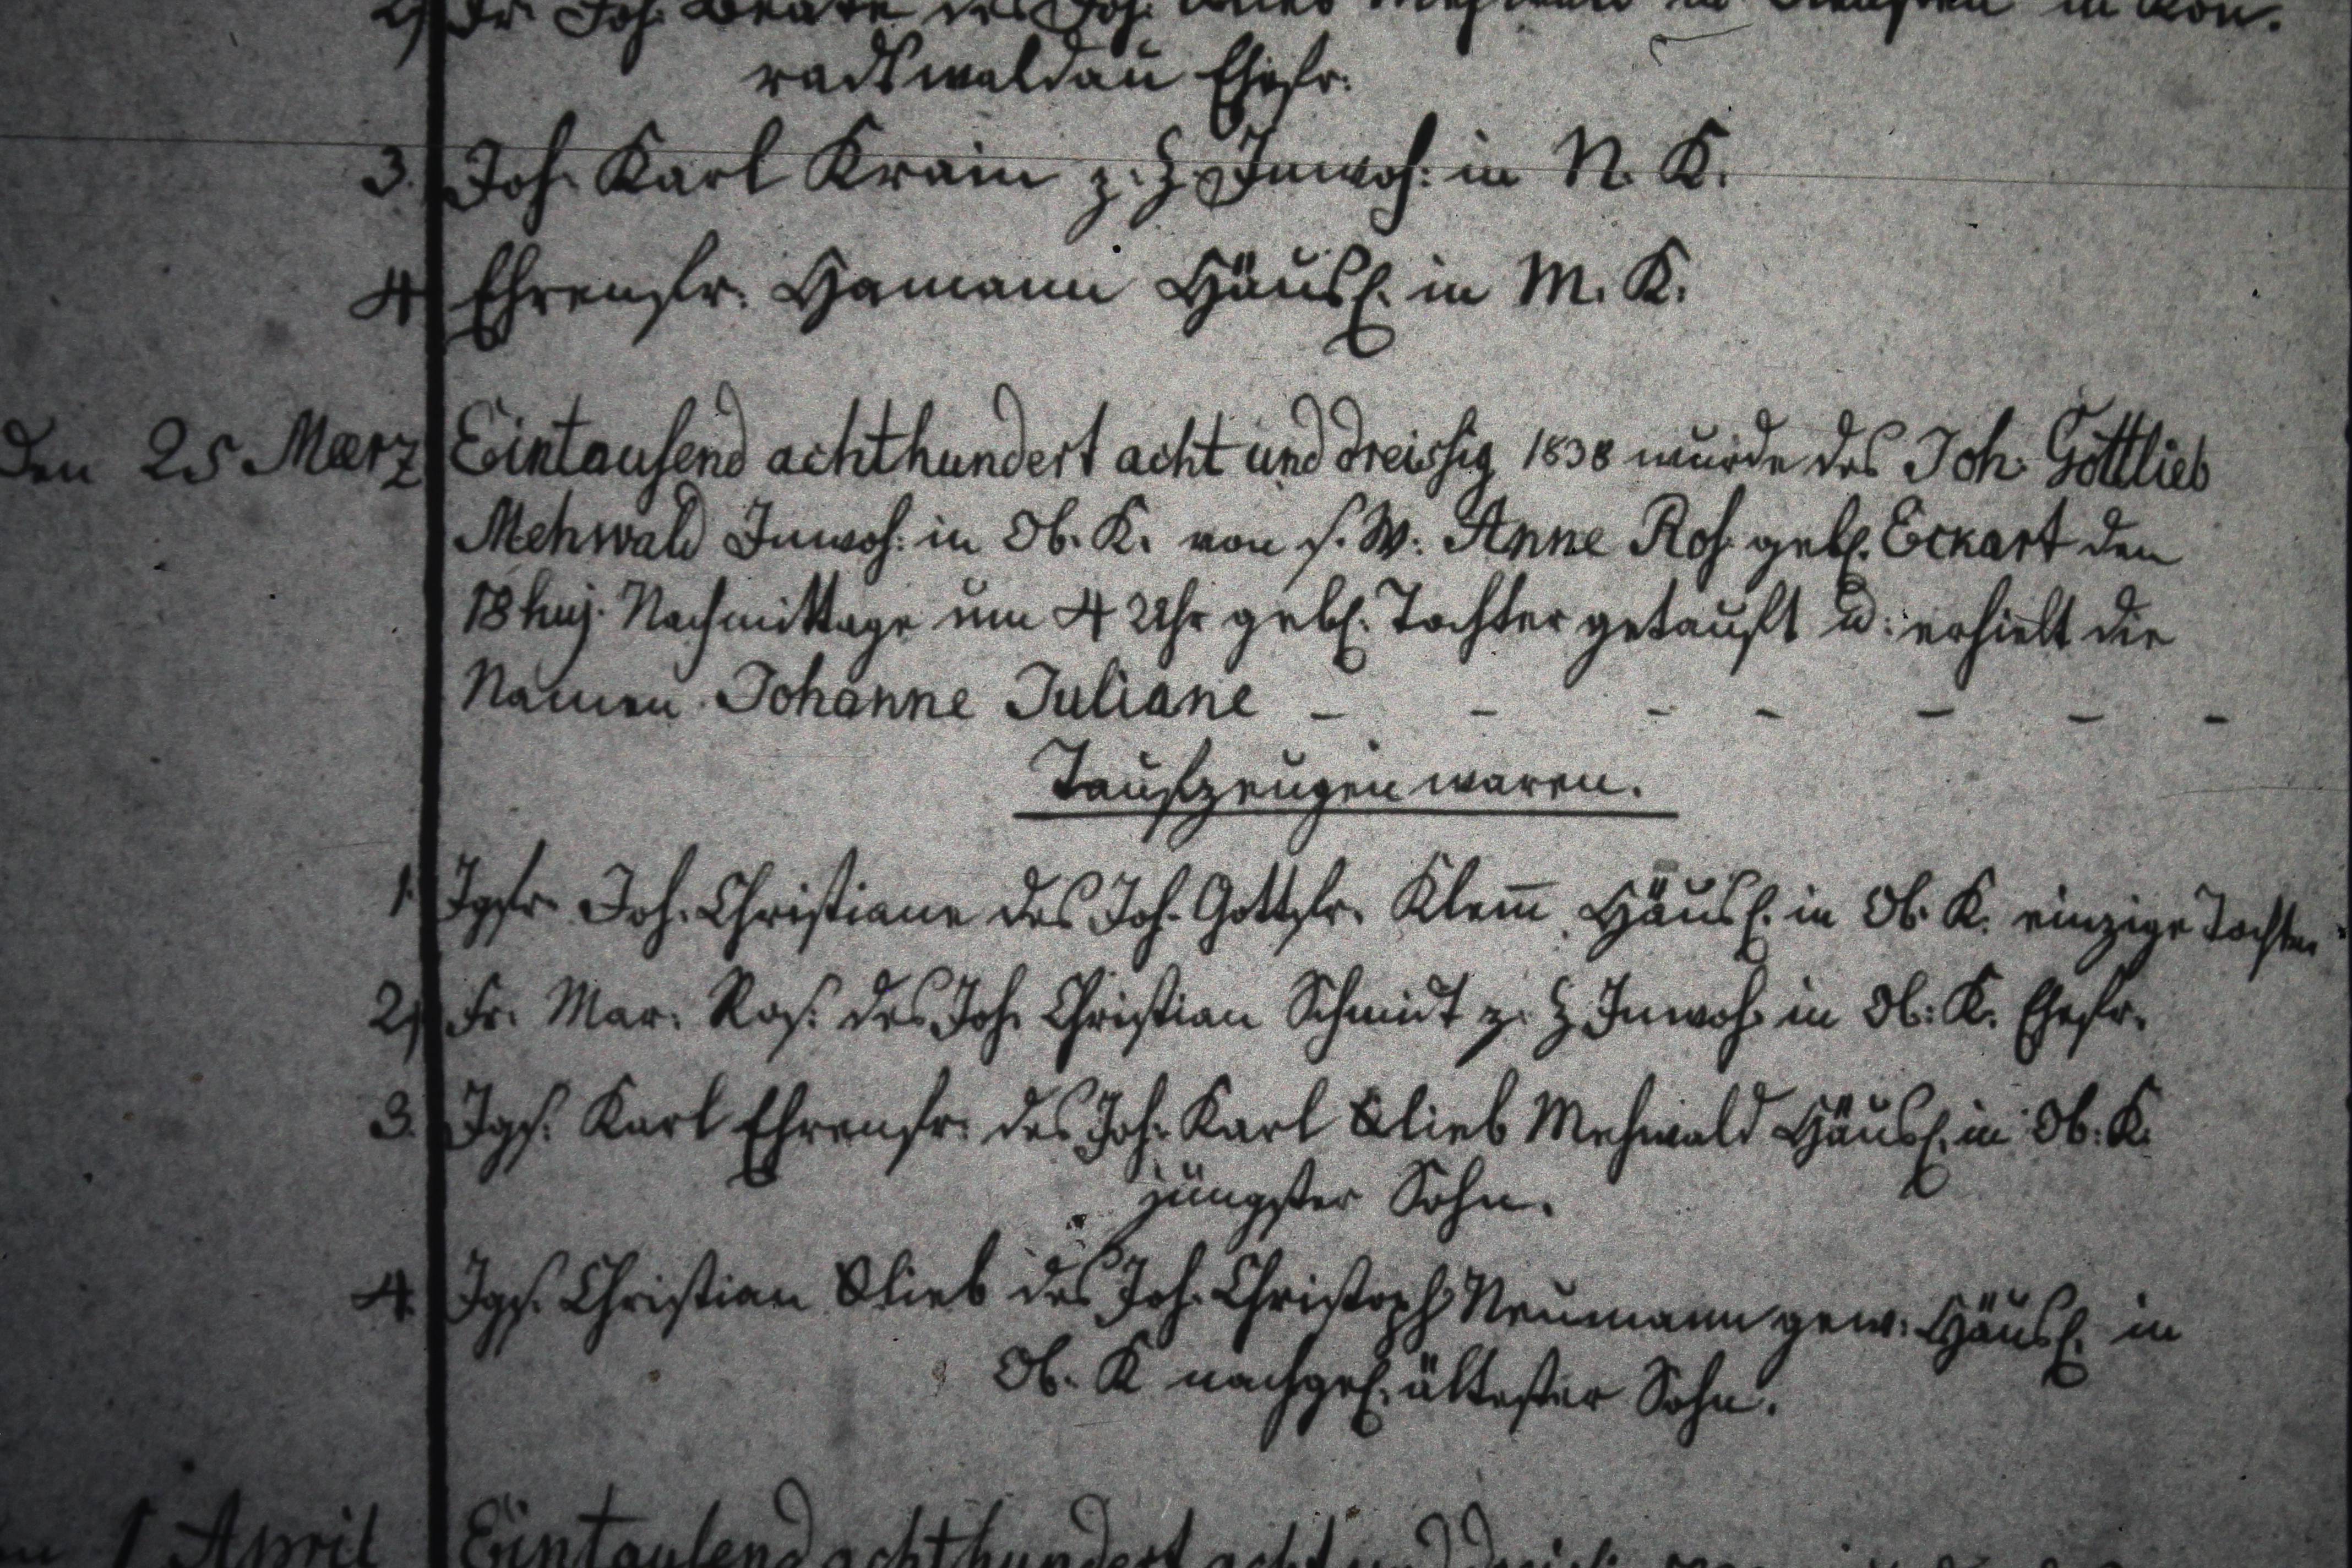 2) Fr. Joh. Beate des Joh. in Kon-
radswaldau Ehefr.
3. Joh. Karl Krain z. Z. Inwoh: in N. K.
4. Ehrenfr: Hamann Häusl. in M. K.
Den 25 Maerz Eintausend achthundert acht und dreissig 1838 wurde des Joh. Gottlieb
Mehwald Inwoh: in Ob. K. von s. W. Anne Ros. gebl. Eckart den
18 huj. Nachmittage um 4 Uhr gebl. Tochter getauft u: erhielt die
Namen Johanne Juliane - - - - - - -
Taufzeugen waren.
1. Jgfr. Joh. Christiane des Joh. Gottfr. Klem̅ Häusl. in Ob. K. einzige Tochter
2) Fr. Mar. Ros. des Joh. Christian Schmidt z. Z Inwoh. in Ob: K. Ehefr.
3. Jgs. Karl Ehrenfr: des Joh. Karl Glieb Mehwald Häusl. in Ob. K.
jüngster Sohn.
4. Jgs. Christian Glieb des Joh. Christoph Neumann gew. Häusl. in
Ob. K nachgel. ältester Sohn.
1 April Eintausend achthundert acht und